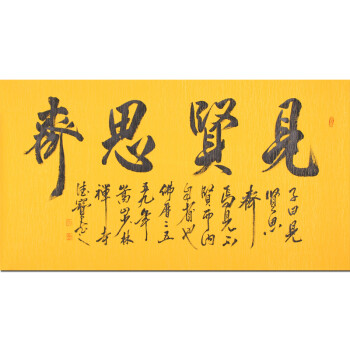 見賢思齊
子曰見
賢思
齊
焉見不
賢而內
自省也
佛曆二五
五九年
嵩山少林
禪寺